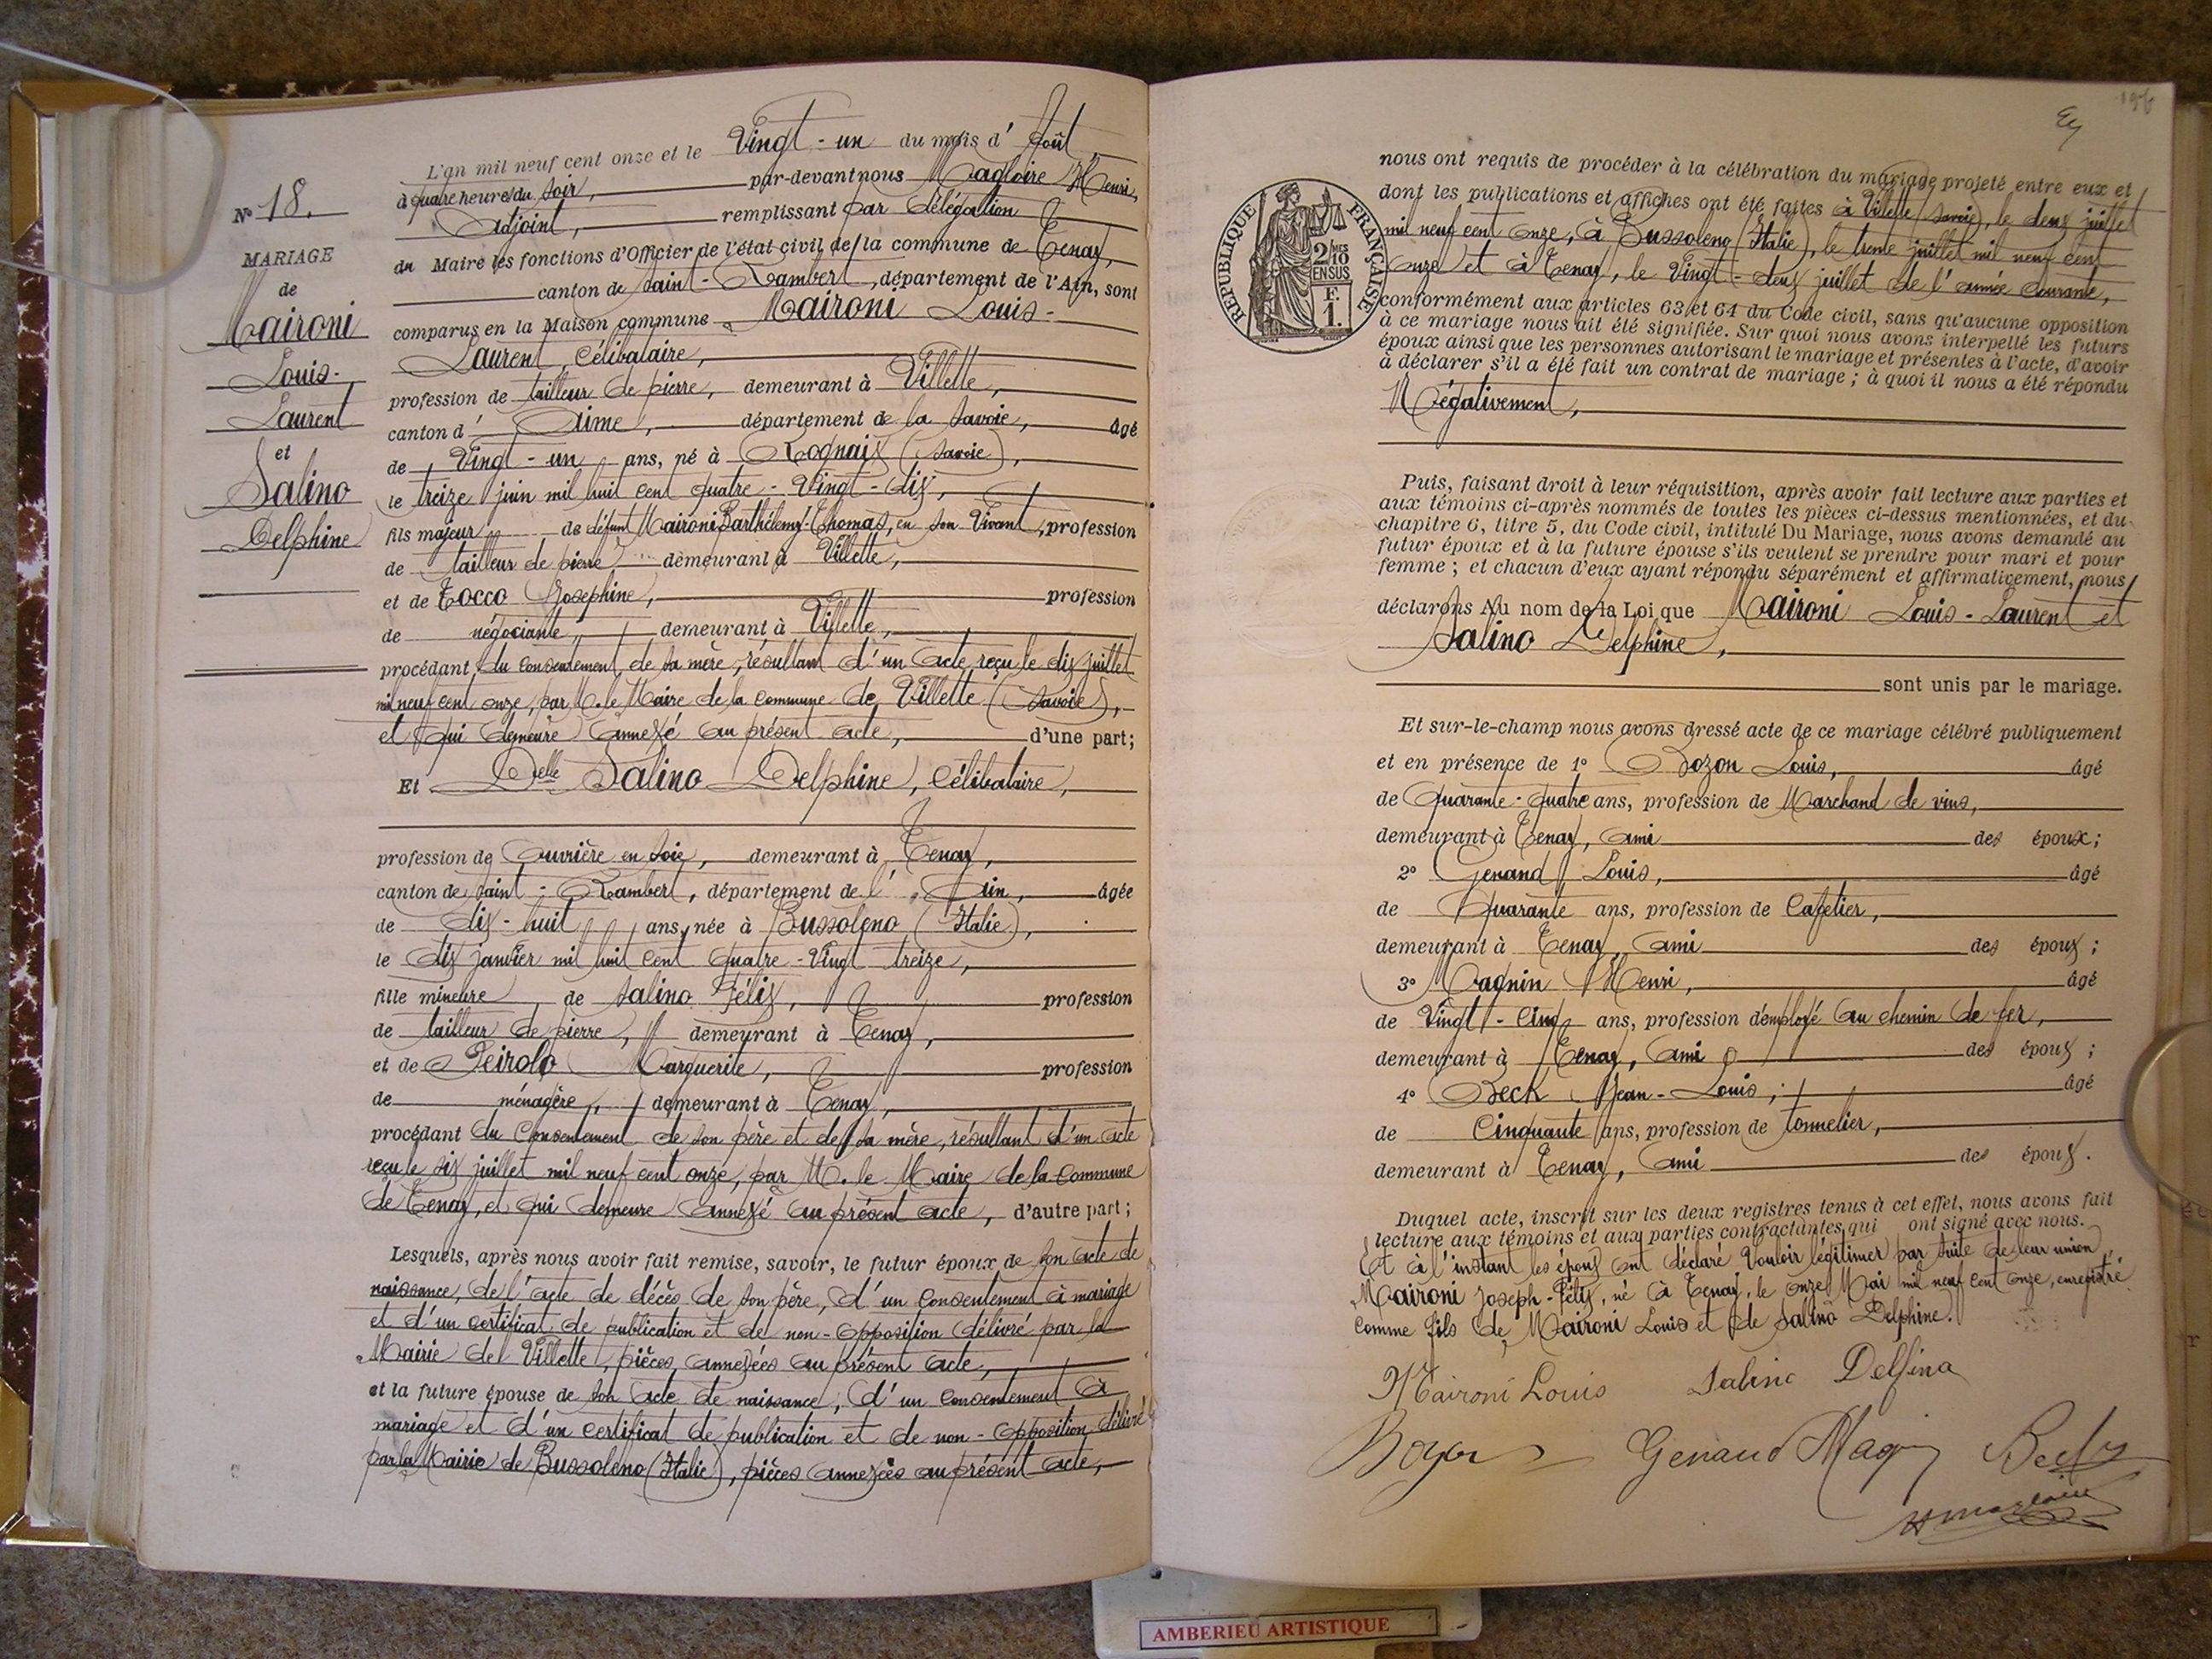 N° 18.
MARIAGE
de
Maironi
Louis-
Laurent
et
Salino
Delphine
L'an mil neuf cent onze et le Vingt-un du mois d'Août
à quatre heures du soir, par-devant nous Magloire Henri,
Adjoint, remplissant par délégation
du Maire les fonctions d'Officier de l'état civil de la commune de Tenay,
canton de Saint-Rambert, département de l'Ain, sont
comparus en la Maison commune Maironi Louis-
Laurent, Célibataire,
profession de tailleur de pierre, demeurant à Villette,
canton d'Aime, département de la Savoie, âgé
de Vingt-un ans, né à Rognaix (Savoie),
le treize juin mil huit cent quatre-Vingt-dix,
fils majeur de défunt Maironi Barthélemy-Thomas, en son Vivant, profession
de tailleur de pierre demeurant à Villette,
et de Tocco Joséphine, profession
de négociante, demeurant à Villette,
procédant du consentement de sa mère, résultant d'un acte reçu le dix juillet
mil neuf cent onze, par M. le Maire de la Commune de Villette (Savoie),
et qui demeure annexé au présent acte, d'une part;
Et Delle Salino Delphine, Célibataire,
profession de Ouvrière en soie, demeurant à Tenay,
canton de Saint-Rambert, département de l'Ain, âgée
de dix-huit ans, née à Bussoleno (Italie),
le dix janvier mil huit cent quatre-Vingt treize,
fille mineure de Salino Félix, profession
de tailleur de pierre, demeurant à Tenay,
et de Peirolo Marguerite, profession
de ménagère, demeurant à Tenay,
procédant du Consentement de son père et de sa mère, résultant d'un acte
reçu le six juillet mil neuf cent onze, par M. le Maire de la Commune
de Tenay, et qui demeure annexé au présent acte, d'autre part;
Lesquels, après nous avoir fait remise, savoir, le futur époux de son acte de
naissance, de l'acte de décès de son père, d'un consentement à mariage
et d'un certificat de publication et de non-opposition délivré par la
Mairie de Villette, pièces annexées au présent acte,
et la future épouse de son acte de naissance, d'un consentement à
mariage et d'un certificat de publication et de non-opposition délivré
par la Mairie de Bussoleno (Italie), pièces annexées au présent acte,
196
RÉPUBLIQUE FRANÇAISE
2/10MES
EN SUS
F.
1.
nous ont requis de procéder à la célébration du mariage projeté entre eux et
dont les publications et affiches ont été faites à Villette (Savoie), le deux juillet
mil neuf cent onze, à Bussoleno (Italie), le trente juillet mil neuf cent
onze et à Tenay, le Vingt-deux juillet de l'année courante,
conformément aux articles 63 et 64 du Code civil, sans qu'aucune opposition
à ce mariage nous ait été signifiée. Sur quoi nous avons interpellé les futurs
époux ainsi que les personnes autorisant le mariage et présentes à l'acte, d'avoir
à déclarer s'il a été fait un contrat de mariage ; à quoi il nous a été répondu
Négativement,
Puis, faisant droit à leur réquisition, après avoir fait lecture aux parties et
aux témoins ci-après nommés de toutes les pièces ci-dessus mentionnées, et du
chapitre 6, titre 5, du Code civil, intitulé Du Mariage, nous avons demandé au
futur époux et à la future épouse s'ils veulent se prendre pour mari et pour
femme ; et chacun d'eux ayant répondu séparément et affirmativement, nous
déclarons Au nom de la Loi que Maironi Louis-Laurent et
Salino Delphine,
sont unis par le mariage.
Et sur-le-champ nous avons dressé acte de ce mariage célébré publiquement
et en présence de 1° Bozon Louis, âgé
de Quarante-quatre ans, profession de Marchand de vins,
demeurant à Tenay, ami des époux;
2° Genand Louis, âgé
de Quarante ans, profession de Cafetier,
demeurant à Tenay, ami des époux;
3° Magnin Henri, âgé
de Vingt-Cinq ans, profession d'employé au chemin de fer,
demeurant à Tenay, ami des époux;
4° Beck Jean-Louis, âgé
de Cinquante ans, profession de tonnelier,
demeurant à Tenay, ami des époux.
Duquel acte, inscrit sur les deux registres tenus à cet effet, nous avons fait
lecture aux témoins et aux parties contractantes qui ont signé avec nous.
Et à l'instant les époux ont déclaré Vouloir légitimer par suite de leur union,
Maironi Joseph-Félix, né à Tenay, le onze Mai mil neuf cent onze, enregistré
comme fils de Maironi Louis et de Salino Delphine.
Maironi Louis Salino Delfina
Genand
AMBERIEU ARTISTIQUE